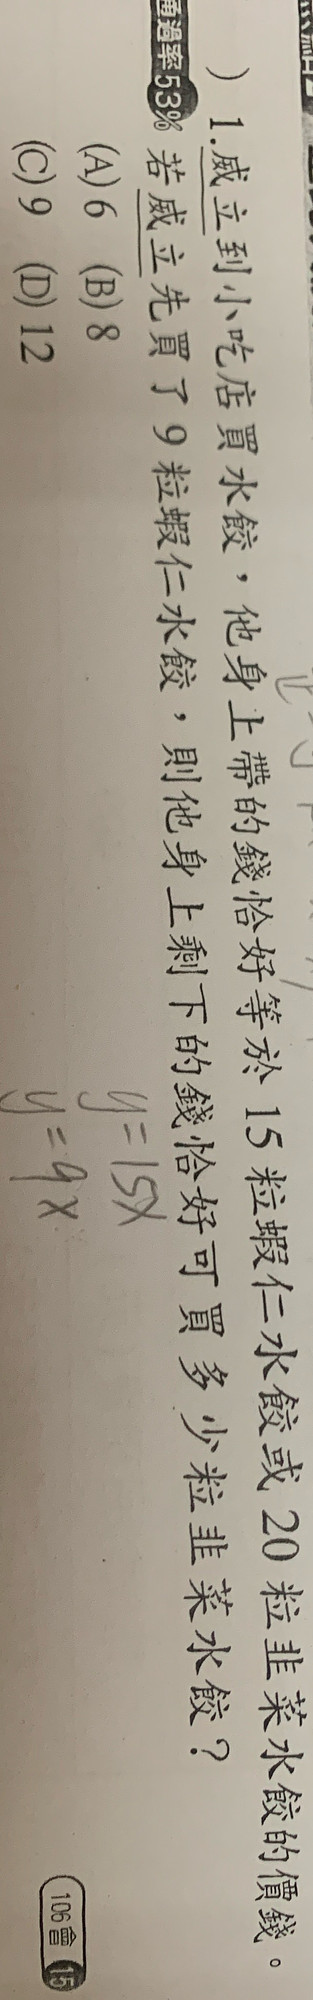 ) 1.威立到小吃店買水餃，他身上帶的錢恰好等於 15 粒蝦仁水餃或 20 粒韭菜水餃的價錢。
通過率53% 若威立先買了 9 粒蝦仁水餃，則他身上剩下的錢恰好可買多少粒韭菜水餃？
(A) 6 (B) 8
(C) 9 (D) 12
y=15x
y=9x
106會 15